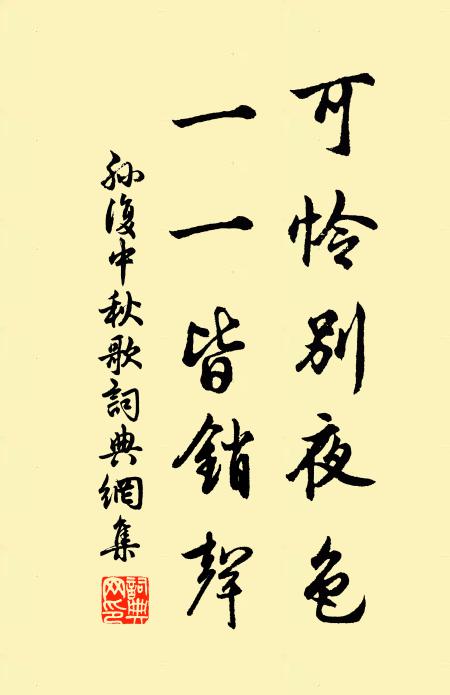 可怜别夜色
一一皆銷聲
孙復中秋歌詞典網集
詞典网印